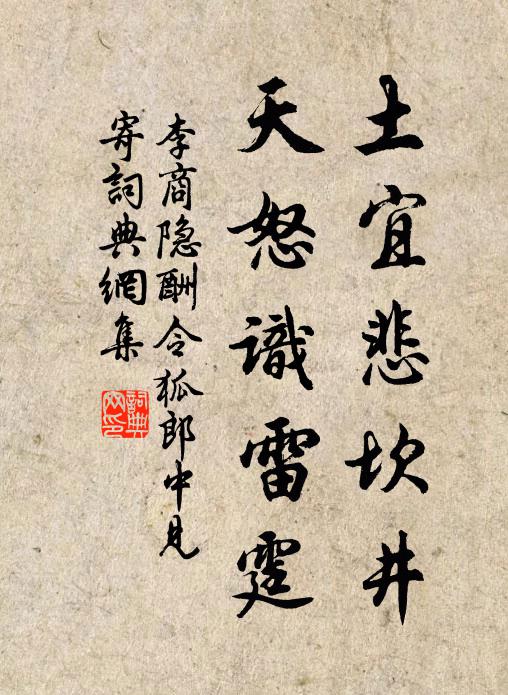 土宜悲坎井
天怒識雷霆
李商隐酬令狐郎中見
寄詞典網集
詞典
网印